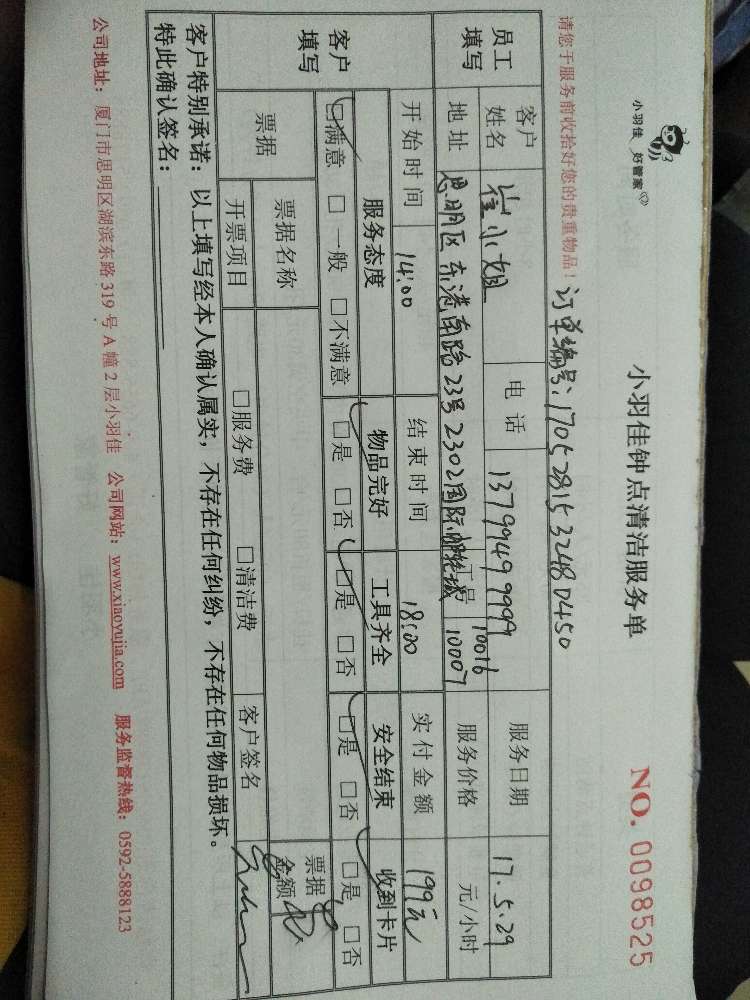 小羽佳 好管家
小羽佳钟点清洁服务单
NO. 0098525
请您于服务前收拾好您的贵重物品！
订单编号：170528153248D450
员工填写
客户姓名 崔小姐 电话 13799499999 服务日期 17.5.29
地址 思明区东港南路23号2302国际邮轮城 号 10016 10007 服务价格 元/小时
开始时间 14:00 结束时间 18:00 实付金额 199元
客户填写
服务态度 物品完好 工具齐全 安全结束 收到卡片
□满意 □一般 □不满意 □是 □否 □是 □否 □是 □否 □是 □否
票据 票据名称 票据金额
开票项目 □服务费 □清洁费 客户签名
客户特别承诺：以上填写经本人确认属实，不存在任何纠纷，不存在任何物品损坏。
特此确认签名：
公司地址：厦门市思明区湖滨东路319号A幢2层小羽佳 公司网站：www.xiaoyujia.com 服务监督热线：0592-5888123